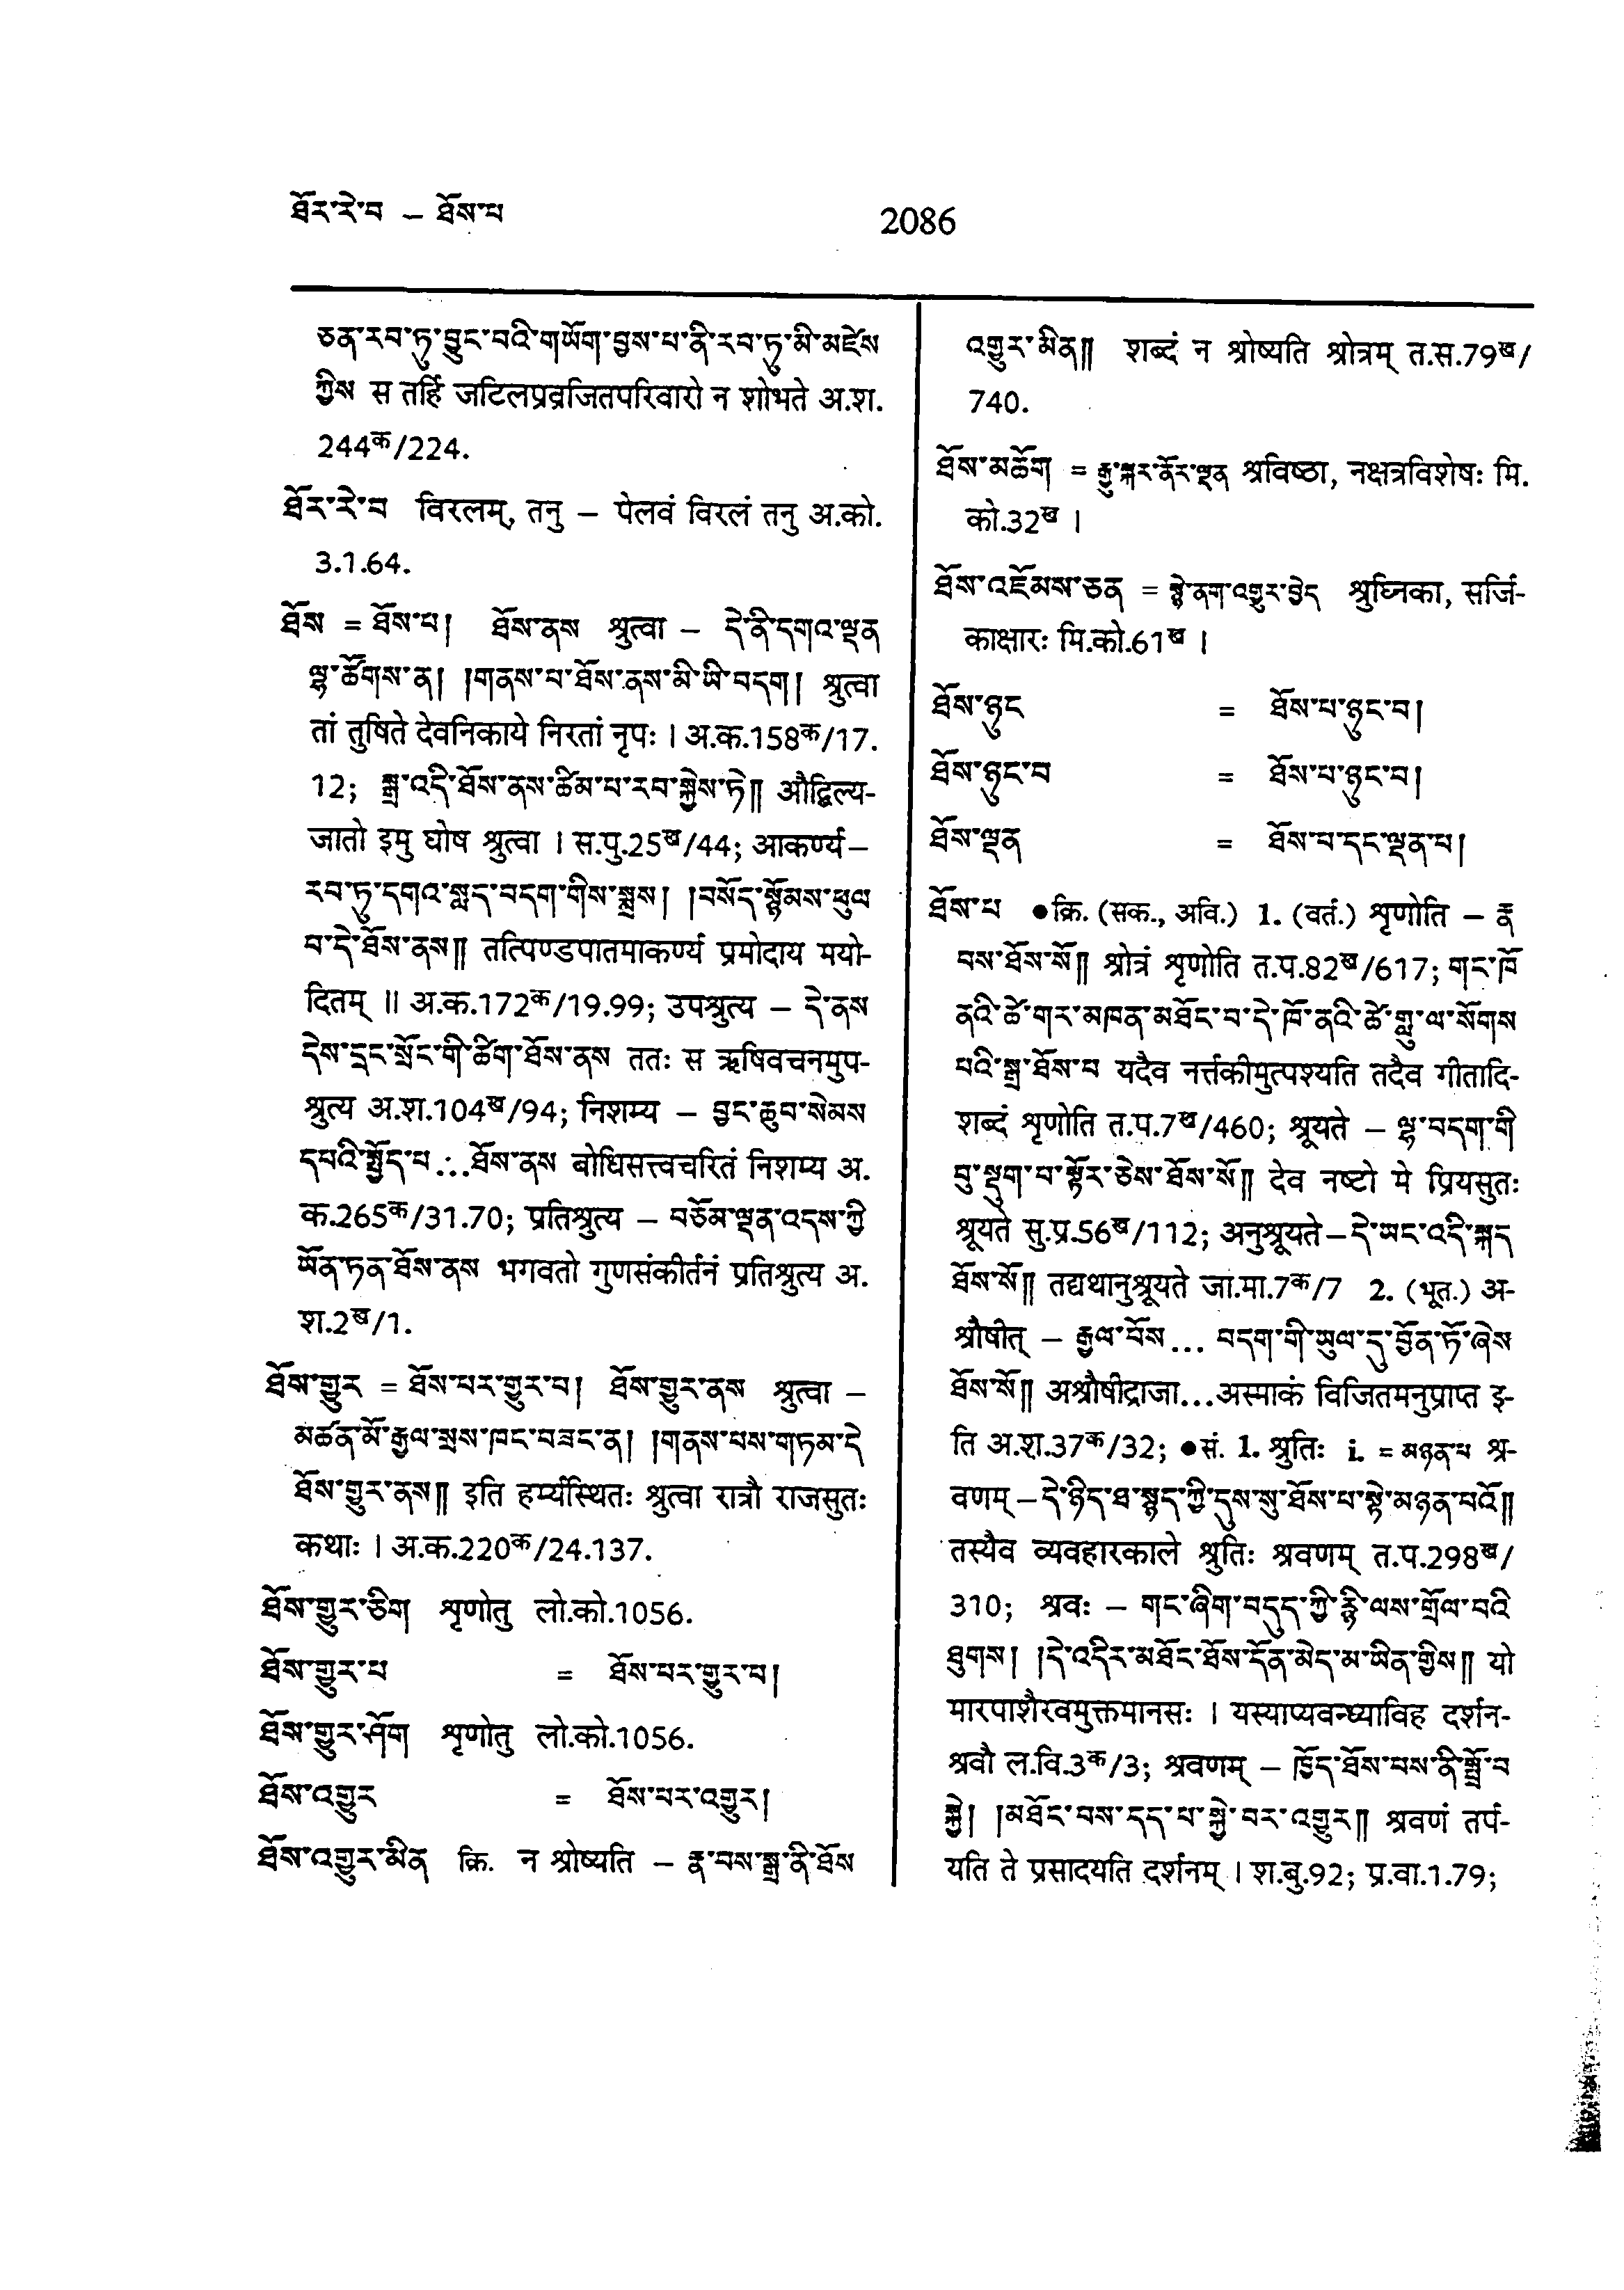 ཐོར་རེ་བ – ཐོས་པ
2086
ཅན་རབ་ཏུ་བྱུང་བའི་གཡོག་བྱས་པ་ནི་རབ་ཏུ་མི་མཛེས
ཀྱིས स तर्हि जटिलप्रव्रजितपरिवारो न शोभते अ.श.
244क/224.
ཐོར་རེ་བ विरलम्, तनु – पेलवं विरलं तनु अ.को.
3.1.64.
ཐོས = ཐོས་པ། ཐོས་ནས श्रुत्वा – དེ་ནི་དགའ་ལྡན
ལྷ་ཚོགས་ན། །གནས་པ་ཐོས་ནས་མི་ཡི་བདག། श्रुत्वा
तां तुषिते देवनिकाये निरतां नृपः । अ.क.158क/17.
12; སྒྲ་འདི་ཐོས་ནས་ཚིམ་པ་རབ་སྐྱེས་ཏེ༎ औद्विल्य-
जातो इमु घोष श्रुत्वा । स.पु.25ख/44; आकर्ण्य –
རབ་ཏུ་དགའ་སླད་བདག་གིས་སྨྲས། །བསོད་སྙོམས་ཕུལ
བ་དེ་ཐོས་ནས༎ तत्पिण्डपातमाकर्ण्य प्रमोदाय मयो-
दितम् ॥ अ.क.172क/19.99; उपश्रुत्य – དེ་ནས
དེས་དྲང་སྲོང་གི་ཚིག་ཐོས་ནས ततः स ऋषिवचनमुप-
श्रुत्य अ.श.104ख/94; निशम्य – བྱང་ཆུབ་སེམས
དཔའི་སྤྱོད་པ...ཐོས་ནས बोधिसत्त्वचरितं निशम्य अ.
क.265क/31.70; प्रतिश्रुत्य – བཅོམ་ལྡན་འདས་ཀྱི
ཡོན་ཏན་ཐོས་ནས भगवतो गुणसंकीर्तनं प्रतिश्रुत्य अ.
श.2ख/1.
ཐོས་གྱུར = ཐོས་པར་གྱུར་པ། ཐོས་གྱུར་ནས श्रुत्वा –
མཚན་མོ་རྒྱལ་སྲས་ཁང་བཟང་ན། །གནས་པས་གཏམ་དེ
ཐོས་གྱུར་ནས༎ इति हर्म्यस्थितः श्रुत्वा रात्रौ राजसुतः
कथाः । अ.क.220क/24.137.
ཐོས་གྱུར་ཅིག शृणोतु लो.को.1056.
ཐོས་གྱུར་པ = ཐོས་པར་གྱུར་པ།
ཐོས་གྱུར་ཤོག शृणोतु लो.को.1056.
ཐོས་འགྱུར = ཐོས་པར་འགྱུར།
ཐོས་འགྱུར་མིན क्रि. न श्रोष्यति – རྣ་བས་སྒྲ་ནི་ཐོས
འགྱུར་མིན༎ शब्दं न श्रोष्यति श्रोत्रम् त.स.79ख/
740.
ཐོས་མཆོག = རྒྱུ་སྐར་ནོར་ལྡན श्रविष्ठा, नक्षत्रविशेषः मि.
को.32ख ।
ཐོས་འཇོམས་ཅན = སྙེ་ནག་འགྱུར་བྱེད श्रुघ्निका, सर्जि-
काक्षारः मि.को.61ख ।
ཐོས་ཉུང = ཐོས་པ་ཉུང་བ།
ཐོས་ཉུང་བ = ཐོས་པ་ཉུང་བ།
ཐོས་ལྡན = ཐོས་པ་དང་ལྡན་པ།
ཐོས་པ ●क्रि. (सक., अवि.) 1. (वर्त.) शृणोति – རྣ
བས་ཐོས་སོ༎ श्रोत्रं शृणोति त.प.82ख/617; གང་ཁོ
ནའི་ཚེ་གར་མཁན་མཐོང་བ་དེ་ཁོ་ནའི་ཚེ་གླུ་ལ་སོགས
པའི་སྒྲ་ཐོས་པ यदैव नर्त्तकीमुत्पश्यति तदैव गीतादि-
शब्दं शृणोति त.प.7ख/460; श्रूयते – ལྷ་བདག་གི
བུ་སྡུག་པ་སྟོར་ཅེས་ཐོས་སོ༎ देव नष्टो मे प्रियसुतः
श्रूयते सु.प्र.56ख/112; अनुश्रूयते – དེ་ཡང་འདི་སྐད
ཐོས་སོ༎ तद्यथानुश्रूयते जा.मा.7क/7 2. (भूत.) अ-
श्रौषीत् – རྒྱལ་པོས... བདག་གི་ཡུལ་དུ་བྱོན་ཏོ་ཞེས
ཐོས་སོ༎ अश्रौषीद्राजा...अस्माकं विजितमनुप्राप्त इ-
ति अ.श.37क/32; ●सं. 1. श्रुतिः i. = མཉན་པ श्र-
वणम् – དེ་ཉིད་ཐ་སྙད་ཀྱི་དུས་སུ་ཐོས་པ་སྟེ་མཉན་པའོ༎
तस्यैव व्यवहारकाले श्रुतिः श्रवणम् त.प.298ख/
310; श्रवः – གང་ཞིག་བདུད་ཀྱི་རྙི་ལས་གྲོལ་བའི
ཐུགས། །དེ་འདིར་མཐོང་ཐོས་དོན་མེད་མ་ཡིན་གྱིས༎ यो
मारपाशैरवमुक्तमानसः । यस्याप्यवन्ध्याविह दर्शन-
श्रवौ ल.वि.3क/3; श्रवणम् – ཁྱོད་ཐོས་པས་ནི་སྤྲོ་བ
སྐྱེ། །མཐོང་བས་དད་པ་སྐྱེ་བར་འགྱུར༎ श्रवणं तर्प-
यति ते प्रसादयति दर्शनम् । श.बु.92; प्र.वा.1.79;